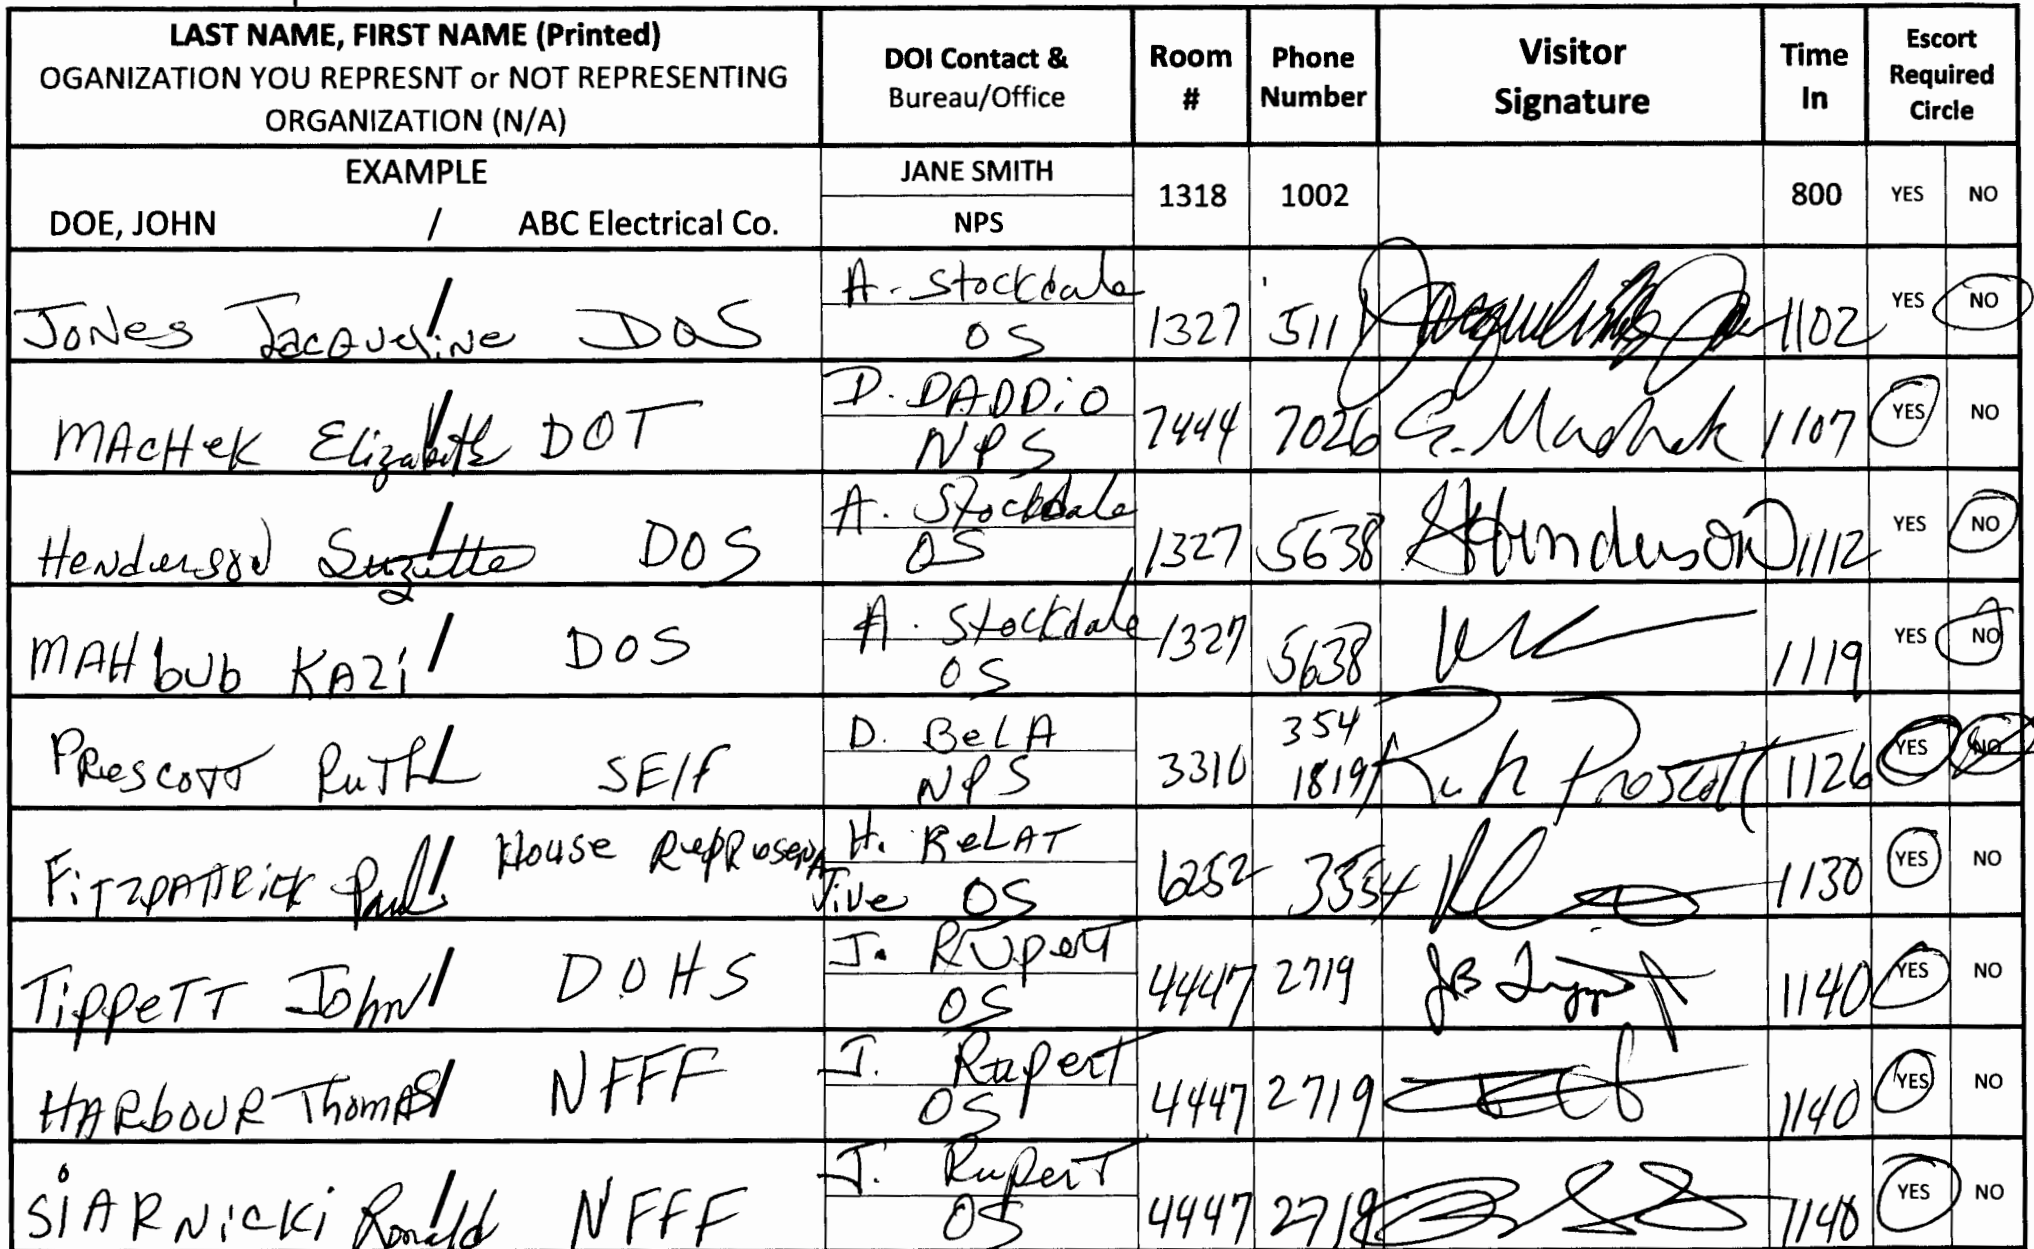 LAST NAME, FIRST NAME (Printed)
OGANIZATION YOU REPRESNT or NOT REPRESENTING
ORGANIZATION (N/A)
DOI Contact &
Bureau/Office
Room
#
Phone
Number
Visitor
Signature
Time
In
Escort
Required
Circle
EXAMPLE
DOE, JOHN / ABC Electrical Co.
JANE SMITH
NPS
1318 1002 800 YES NO
JONes Jacqueline / DOS
A. Stockdale
OS
1327 5111 1102 YES NO
MAcHeK Elizabeth / DOT
D. DADDiO
NPS
7444 7026 E. Machek 1107 YES NO
Henderson Suzette / DOS
A. Stockdale
OS
1327 5638 SHenderson 1112 YES NO
MAHbub KAZi / DOS
A. Stockdale
OS
1327 5638 1119 YES NO
PRescoTT RuTH / SElf
D. BeLA
NPS
3310 354
1819 Ruth Prescott 1126 YES NO
FiTZpATRicK Paul / House RepResenA
Tive
H. ReLAT
OS
6252 3554 1130 YES NO
TippeTT John / DOHS
J. Rupert
OS
4447 2719 1140 YES NO
HARbouR ThomAS / NFFF
J. Rupert
OS
4447 2719 1140 YES NO
SiARNicKi Ronald / NFFF
J. RuperT
OS
4447 2719 1140 YES NO